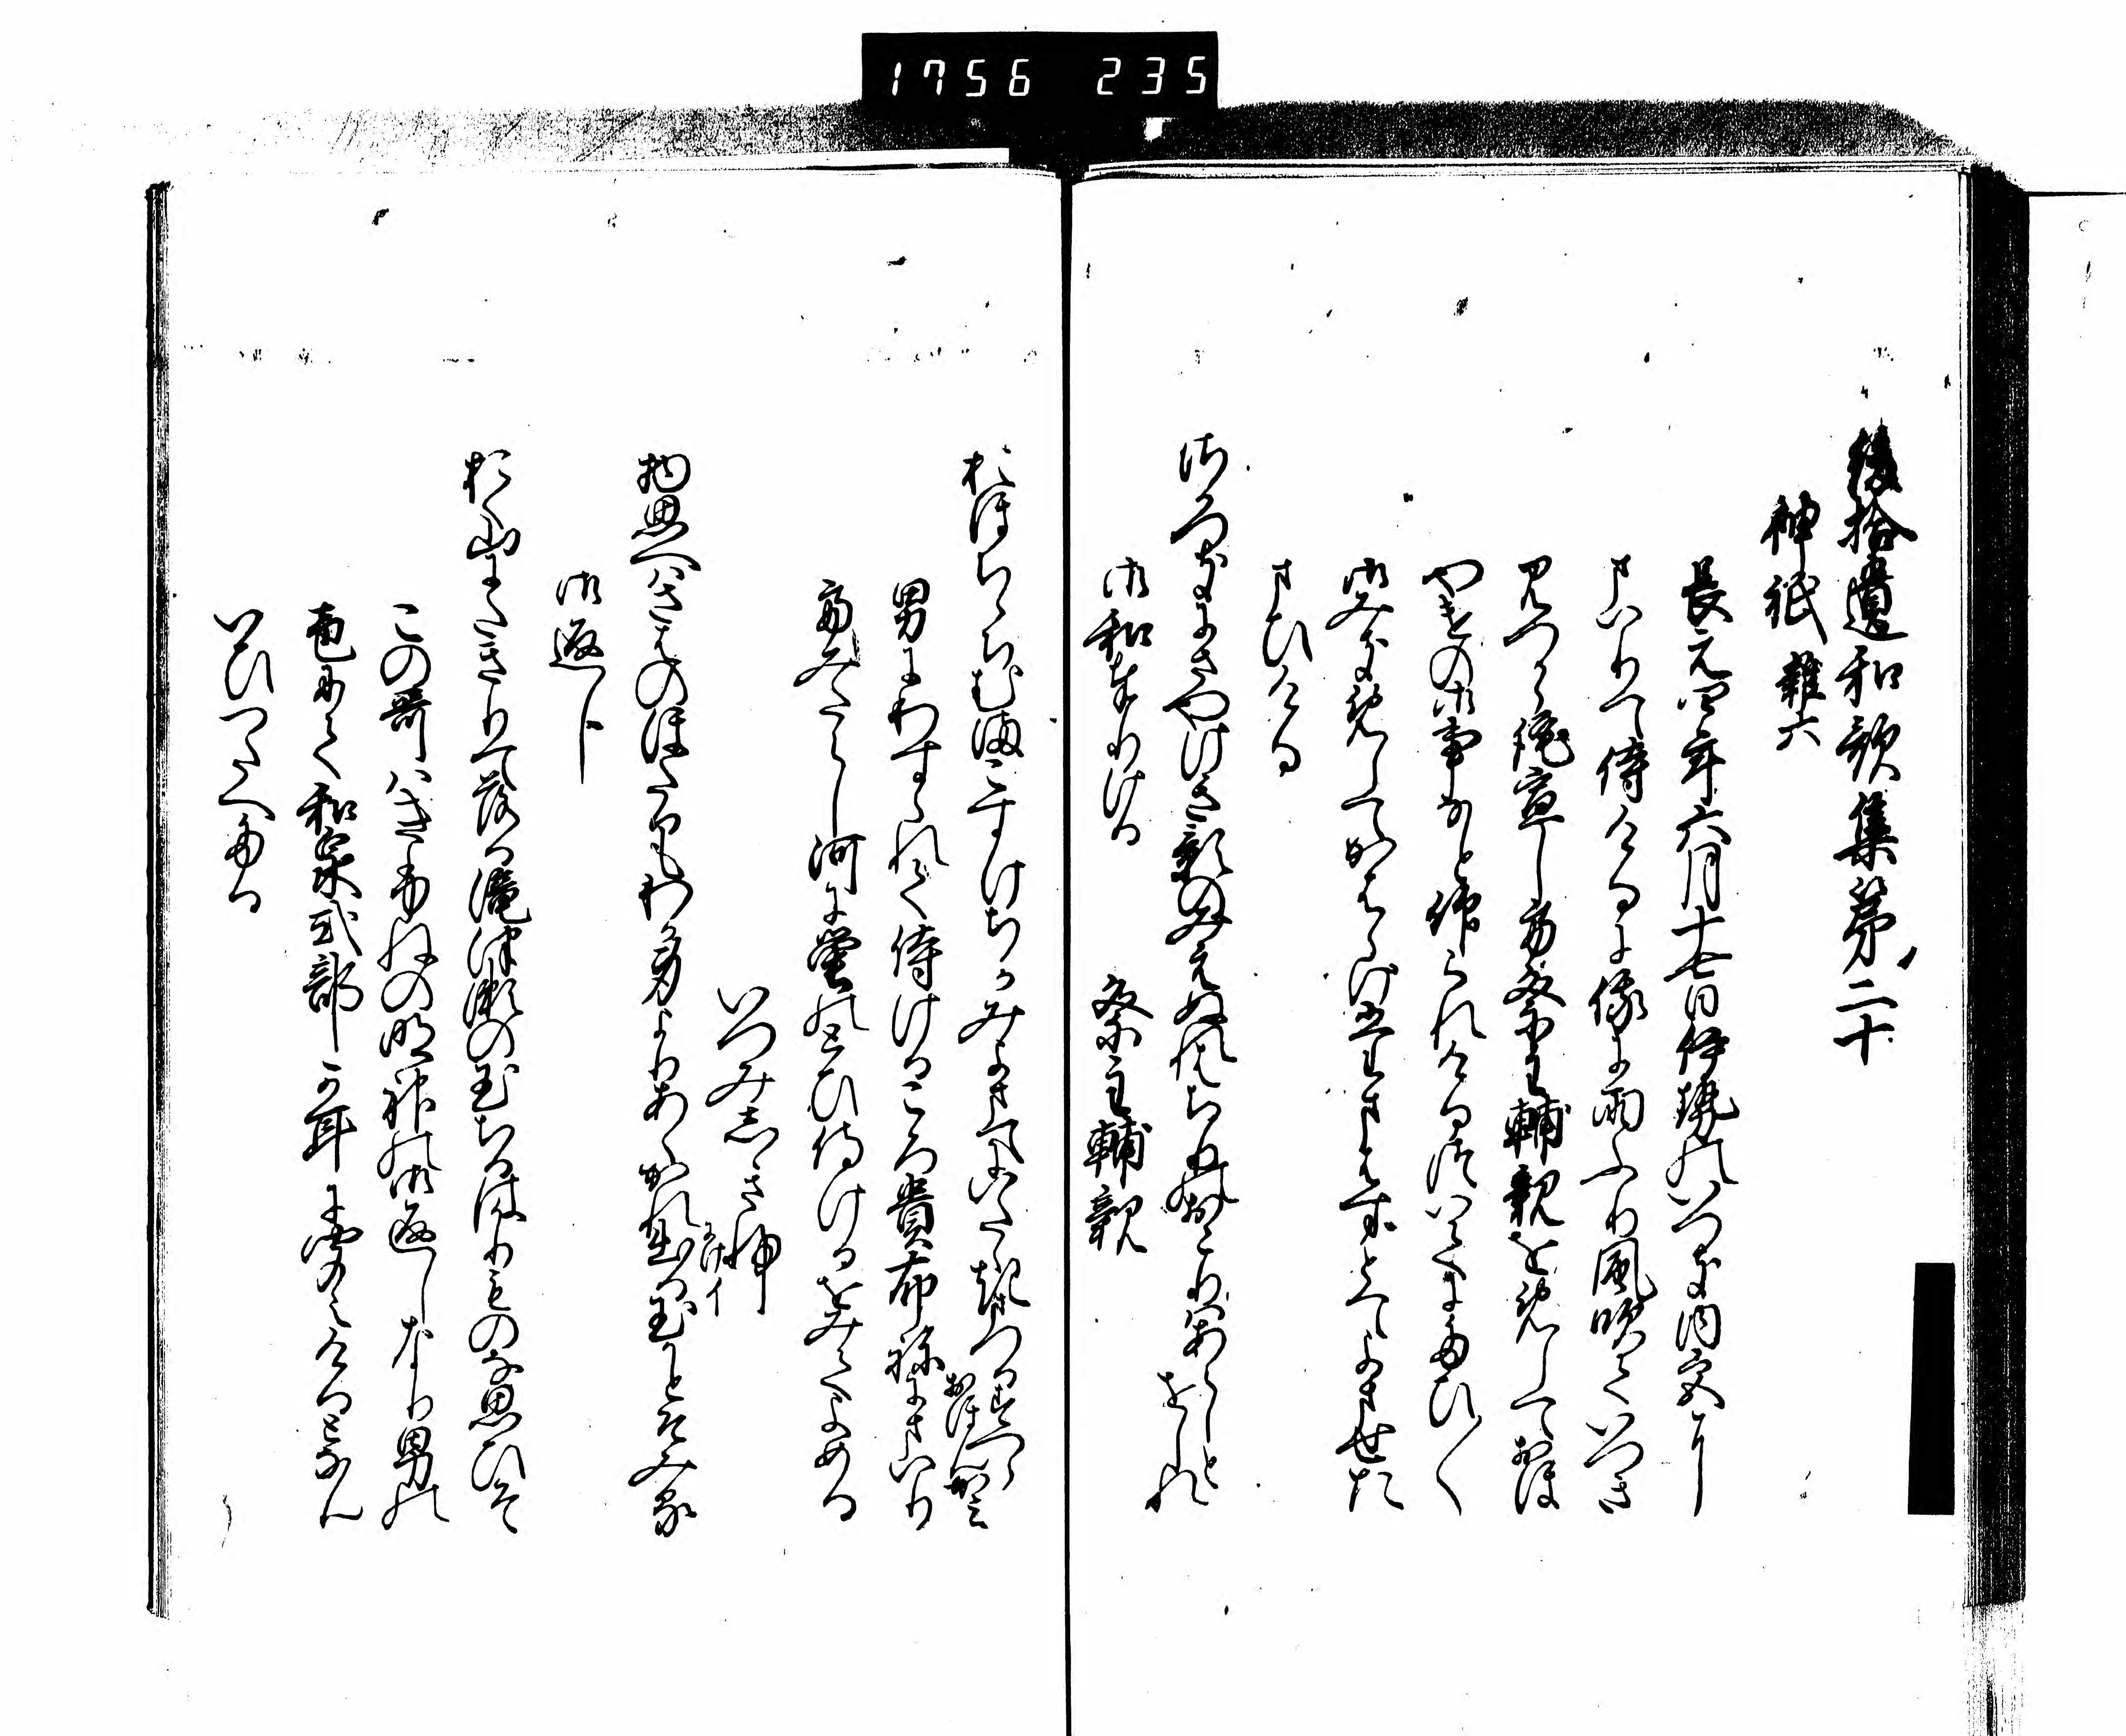 1756 235
後拾遺和歌集第二十
神祇 雑六
長元四年六月十七日伊勢のいつき内宮に
まいりて侍けるに俄に雨ふり風吹ていつき
みつから託宣して祭主輔親を めしておほ
やけの御事なと仰られけるついてにたひ〱
御みきめしてかはらけたまはすとてよませた
まひける
さかつきにさやけき影のみえぬれはちりのおそりはあらしと
をしれ
御和奉りける
祭主輔親
おほちちちむまこすけちかみよまてにいたゝきまつるすへら
おほん神
男にわすられて侍けるころ貴布祢にまいり
てみたらし河に蛍のとひ侍けるをみてよめる
いつみしき部
物思へはさはのほたるもわか身よりあくかれ出る玉かとそみる
ける イ
御返し
おく山にたきりて落る滝津瀬の玉ちるはかりものな思ひそ
この哥はきふねの明神の御返しなり男の
こゑにて和泉式部か耳に聞えけるとなん
いひつたへたる